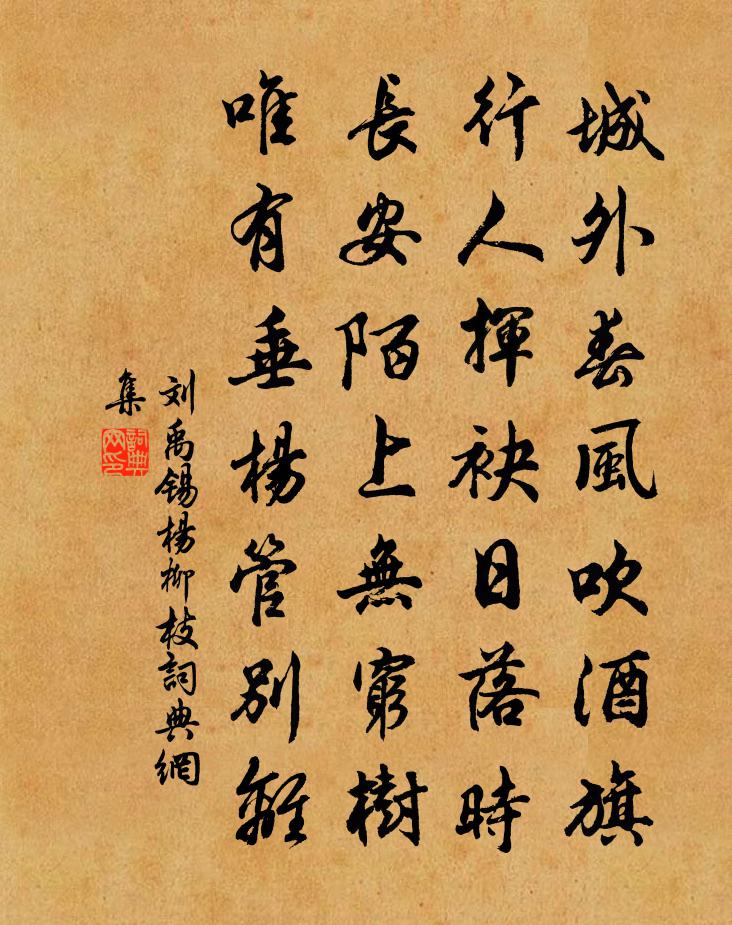 城外春風吹酒旗
行人揮袂日落時
長安陌上無窮樹
唯有垂楊管別離
刘禹锡楊柳枝詞典網
集
詞典網印